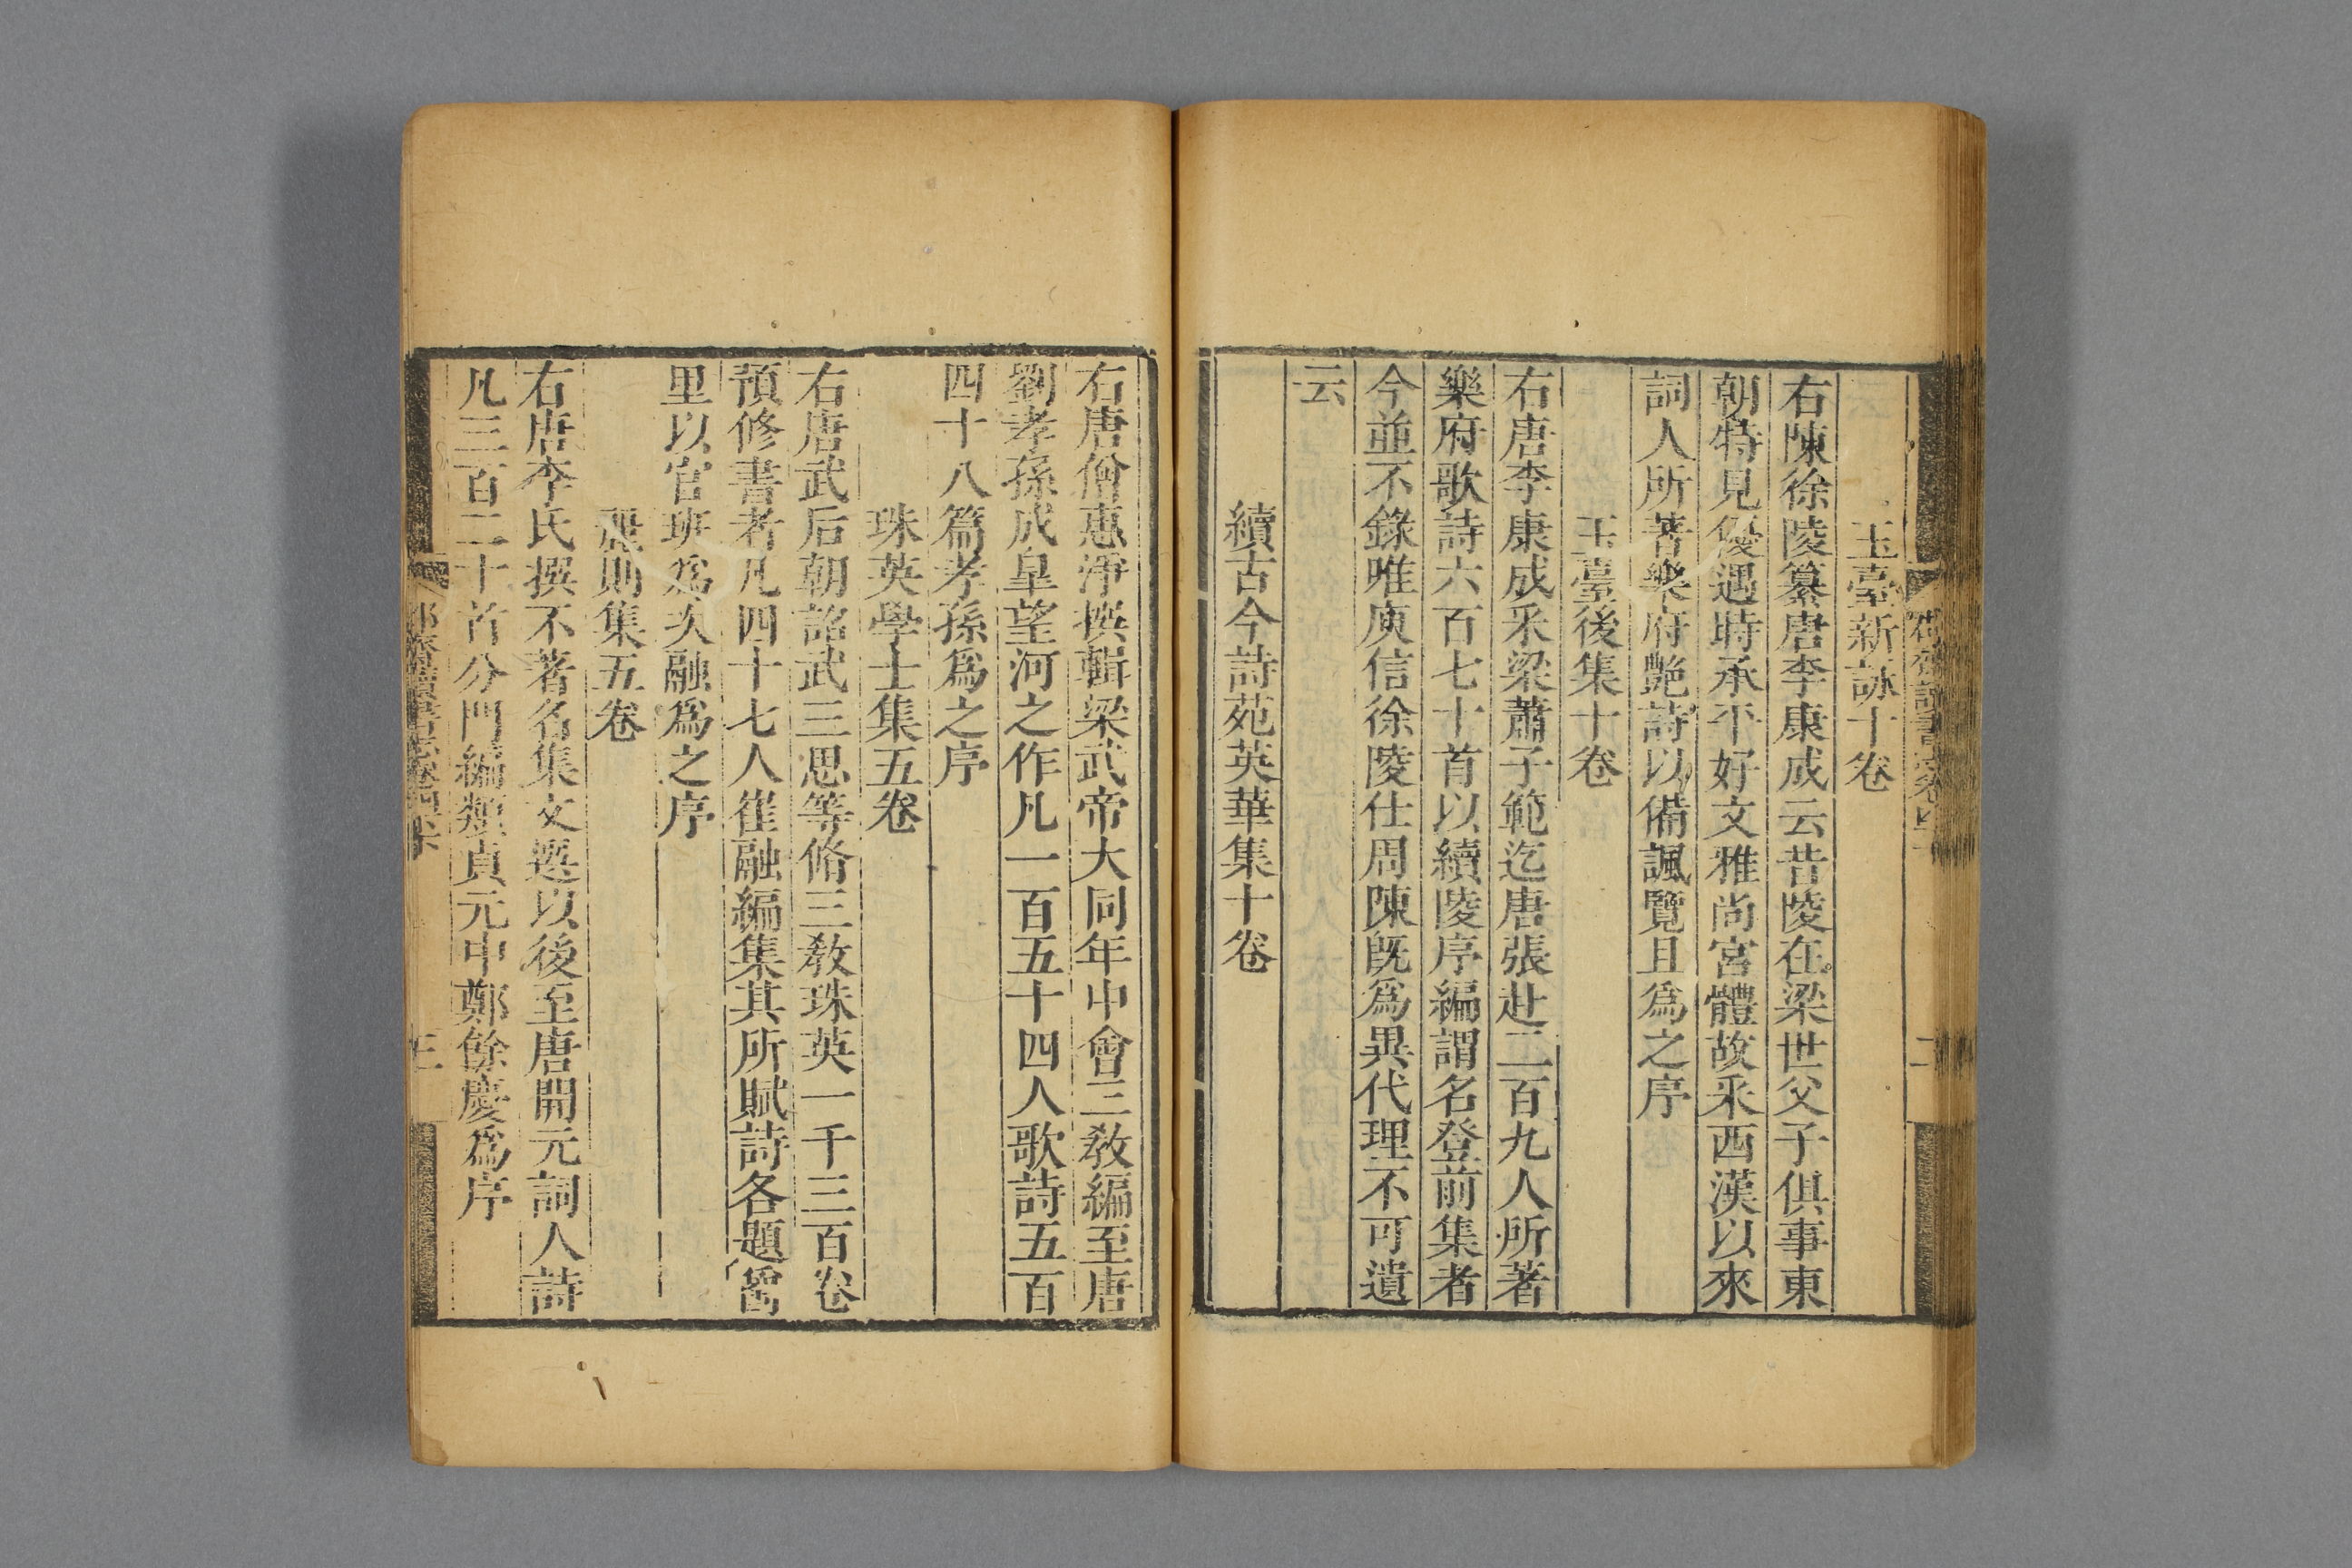 玉臺新詠十卷
右陳徐陵纂唐李康成云昔陵在梁世父子俱事東
朝特見優遇時承平好文雅尚宮體故采西漢以來
詞人所著樂府艷詩以備諷覽且爲之序
玉臺後集十卷
右唐李康成采梁蕭子範迄唐張赴二百九人所著
樂府歌詩六百七十首以續陵序編謂名登前集者
今並不錄唯庾信徐陵仕周陳既爲異代理不可遺
云
續古今詩苑英華集十卷
右唐僧惠淨撰輯梁武帝大同年中會三教編至唐
劉孝孫成皐望河之作凡一百五十四人歌詩五百
四十八篇孝孫爲之序
珠英學士集五卷
右唐武后朝詔武三思等脩三教珠英一千三百卷
預修書者凡四十七人崔融編集其所賦詩各題爵
里以官班爲次融爲之序
麗則集五卷
右唐李氏撰不著名集文選以後至唐開元詞人詩
凡三百二十首分門編類貞元中鄭餘慶爲序
三